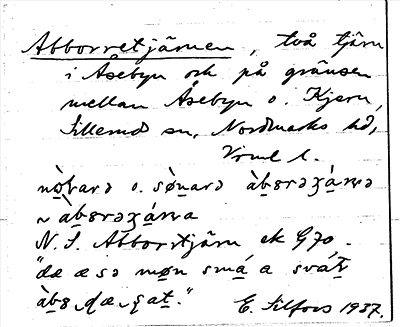 Abborretjärnen, två tjärn
i Åsebyn och på gränsen
mellan Åsebyn o. Kjern,
Sillerud sn, Nordmarks hd,
Vrml l.
nò̱ɽarə o. sø̀narə àbərəʒä́ɳə
~ àbərəʒä́ɳa
N. S. Abborrtjärn ek G70.
"dæ æ sə møn smǻ a svát
àbər dæ gat."
E. Silfors 1937.